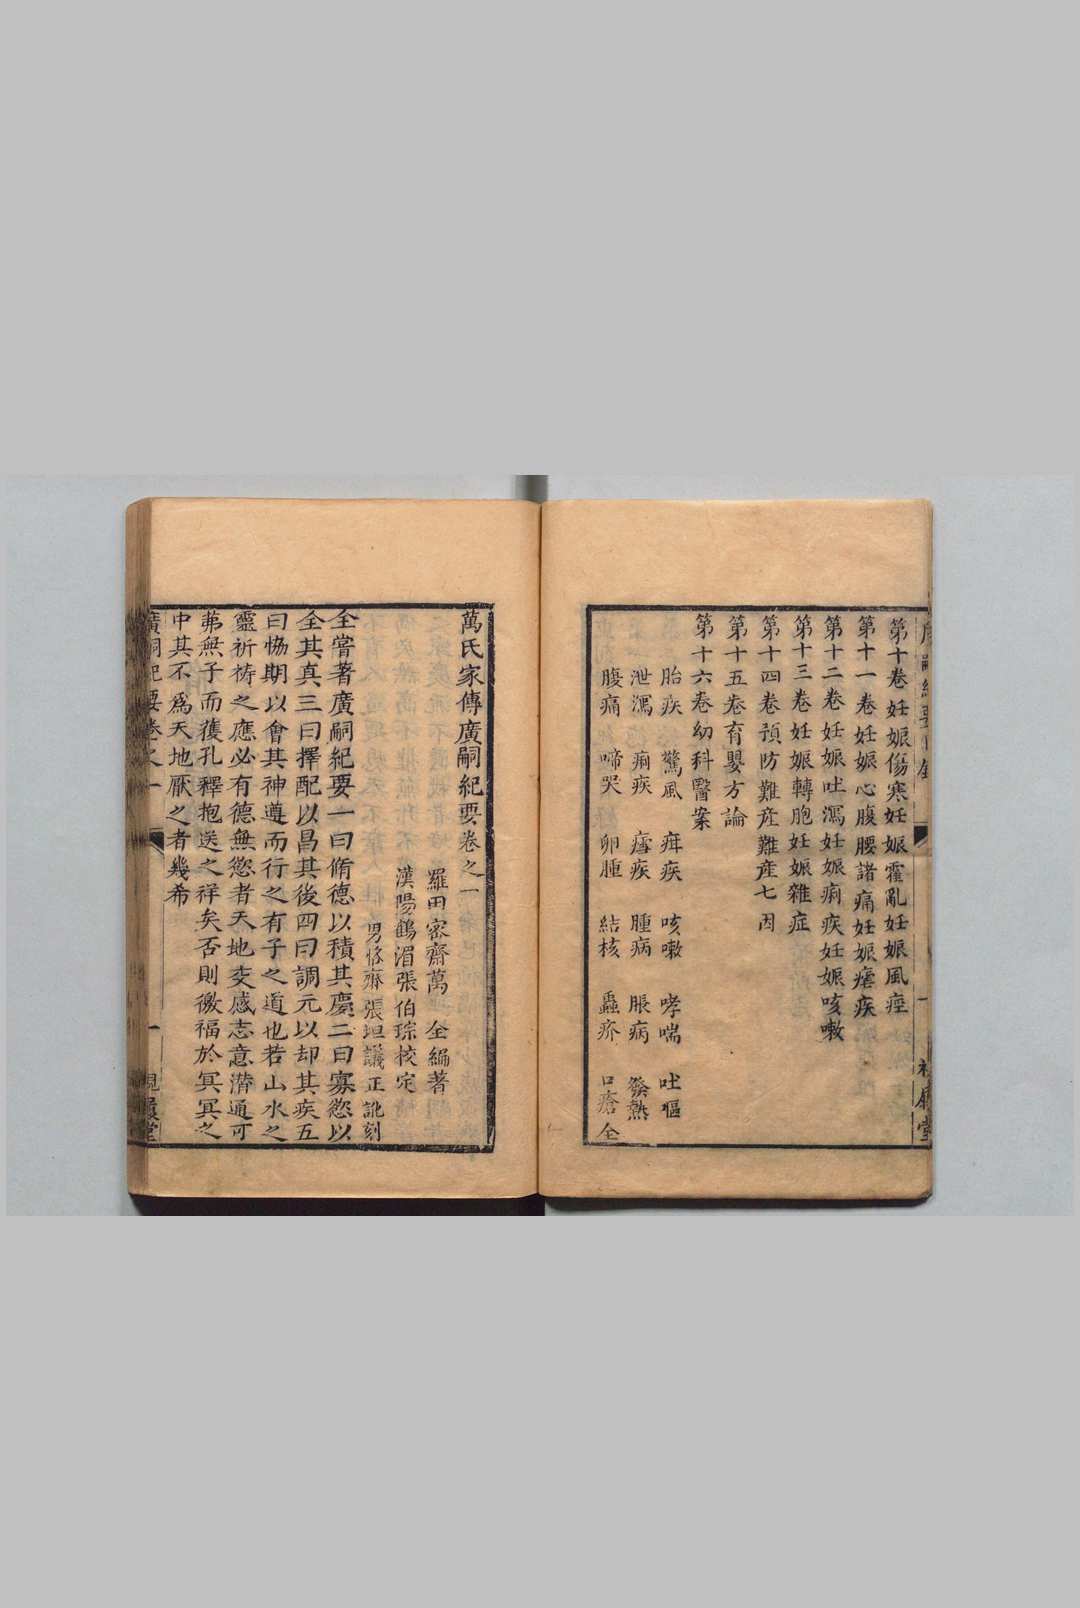 第十卷妊娠傷寒妊娠霍亂妊娠風痙
第十一卷妊娠心腹腰諸痛妊娠瘧疾
第十二卷妊娠吐瀉妊娠痢疾妊娠咳嗽
第十三卷妊娠轉胞妊娠雜症
第十四卷預防難產難產七因
第十五卷育嬰方論
第十六卷幼科醫案
胎疾 驚風 疳疾 咳嗽 哮喘 吐嘔
泄瀉 痢疾 瘧疾 腫病 脹病 發熱
腹痛 啼哭 卵腫 結核 蟲疥 口瘡 全
萬氏家傳廣嗣紀要卷之一
羅田宻齋萬 全編著
漢陽鶴湄張伯琮校定
男恪齋張坦議正訛刻
全嘗著廣嗣紀要一曰脩德以積其慶二曰寡慾以
全其真三曰擇配以昌其後四曰調元以却其疾五
曰恊期以會其神遵而行之有子之道也若山水之
靈祈禱之應必有德無慾者天地交感志意潛通可
弗無子而獲孔釋抱送之祥矣否則徼福於冥冥之
中其不為天地厭之者幾希
廣嗣紀要卷之一
一
視履堂